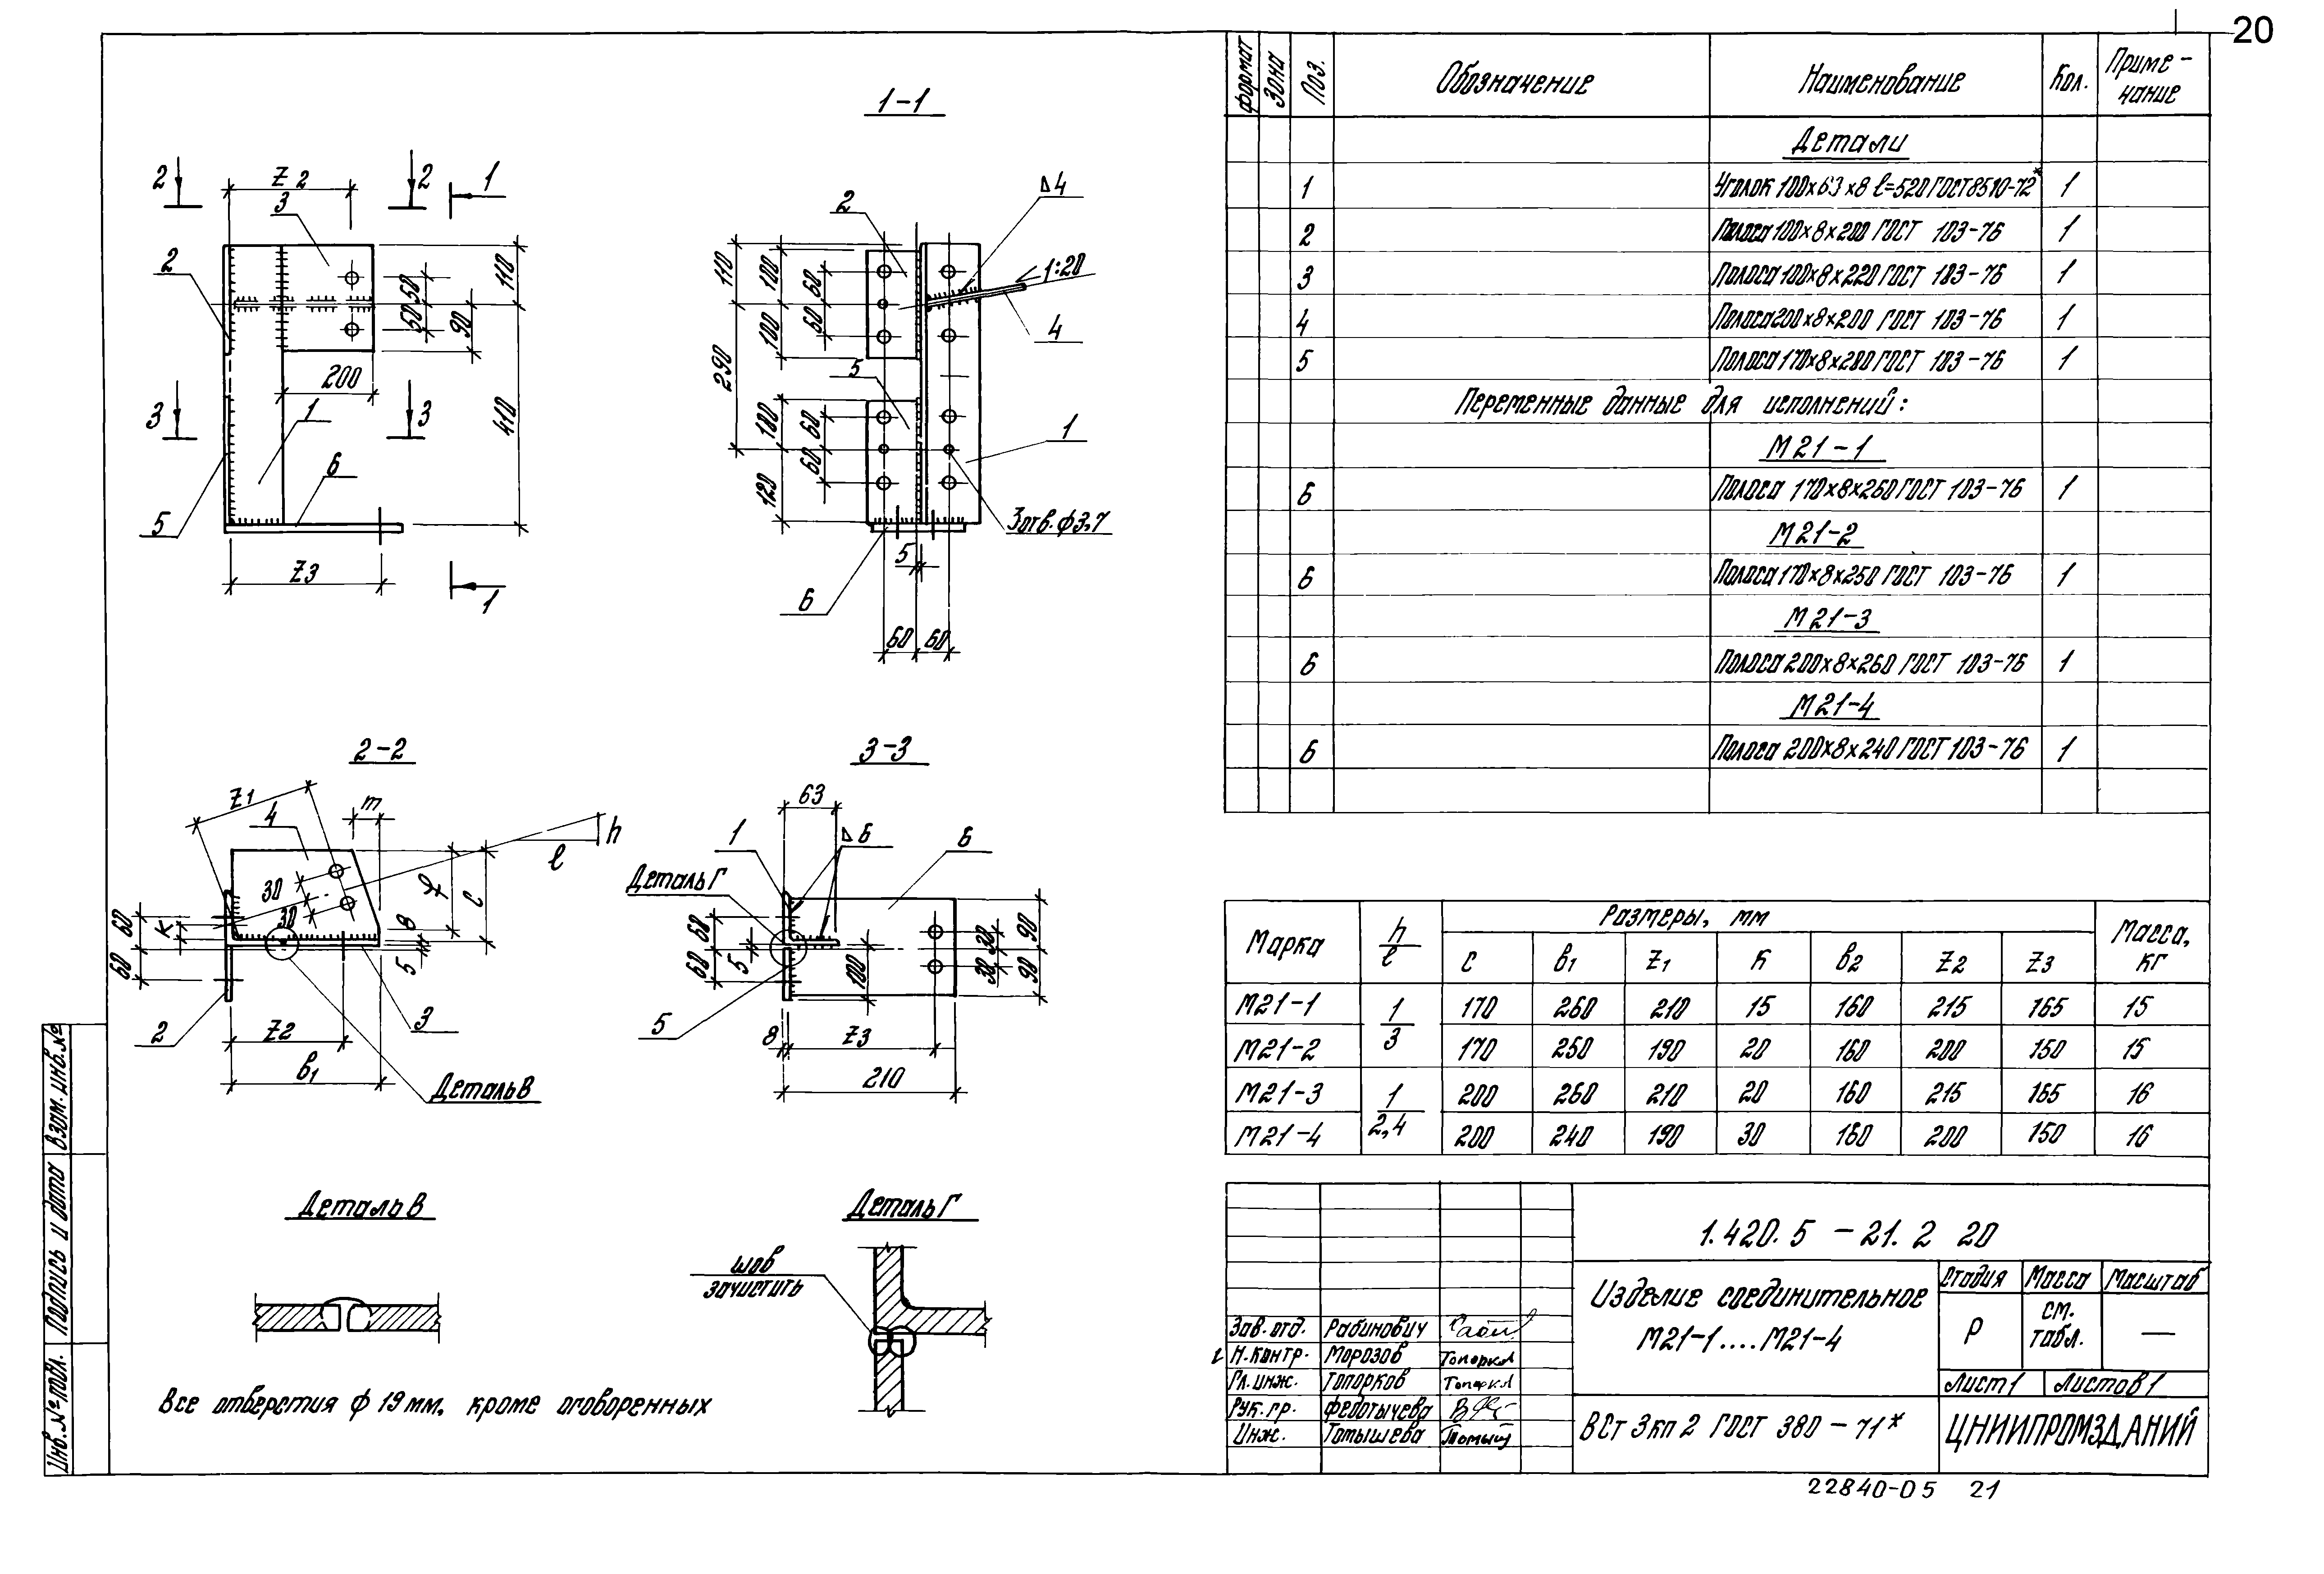 20
1-1
2
2
1
Z2
3
2
50
50
90
110
200
3
3
1
410
6
5
Z3
1
2
Δ4
1:20
4
110
100
60
60
100
290
5
180
60
60
120
1
3 отв. ф3,7
5
6
60
60
2-2
Z1
m
4
h
l
30
30
60
60
К
8
5
c
2
3
Z2
в1
Деталь В
3-3
63
1
Δ6
6
Деталь Г
60
60
5
100
30
30
90
90
5
8
Z3
210
Деталь В
Деталь Г
шов
зачистить
Все отверстия ф 19 мм, кроме оговоренных
формат
Зона
Поз.
Обозначение
Наименование
Кол.
Приме-
чание
Детали
1 Уголок 100х63х8 l=520 ГОСТ 8510-72* 1
2 Полоса 100х8х200 ГОСТ 103-76 1
3 Полоса 100х8х220 ГОСТ 103-76 1
4 Полоса 200х8х200 ГОСТ 103-76 1
5 Полоса 170х8х280 ГОСТ 103-76 1
Переменные данные для исполнений:
М21-1
6 Полоса 170х8х260 ГОСТ 103-76 1
М21-2
6 Полоса 170х8х250 ГОСТ 103-76 1
М21-3
6 Полоса 200х8х260 ГОСТ 103-76 1
М21-4
6 Полоса 200х8х240 ГОСТ 103-76 1
Марка
h
l
Размеры, мм
Масса,
кг
c в1 Z1 К в2 Z2 Z3
М21-1 1 170 260 210 15 160 215 165 15
М21-2 3 170 250 190 20 160 200 150 15
М21-3 1 200 260 210 20 160 215 165 16
М21-4 2,4 200 240 190 30 160 200 150 16
1.420.5 - 21.2 20
Изделие соединительное
М21-1....М21-4
Стадия Масса Масштаб
Р
см.
табл.
—
Лист 1 Листов 1
Зав. отд. Рабинович
Н. контр. Морозов
Гл. инж. Топорков
Рук. гр. Федотычева
Инж. Томышева
ВСт 3кп 2 ГОСТ 380-71*
ЦНИИПРОМЗДАНИЙ
22840-05 21
Взам. инв. №
Подпись и дата
Инв. № подл.